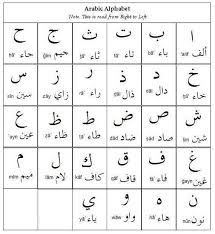 Arabic Alphabet
Note: This is read from Right to Left
ا ب ت ث ج ح
ألف باء bā' تاء tā' ثاء جيم ǧīm حاء ḥā'
خ د ذ ر ز س
خاء دال dāl ذال راء rā' زاي zāy سين sīn
ش ص ض ط ظ ع
شين šīn صاد ṣād ضاد ḍād طاء ṭā' ظاء ẓā' عين 'ayn
غ ف ق ك ل م
غين فاء fā' قاف qāf كاف kāf لام lām ميم mīm
ن ه و ي
نون nūn هاء hā' واو wāw ياء yā'